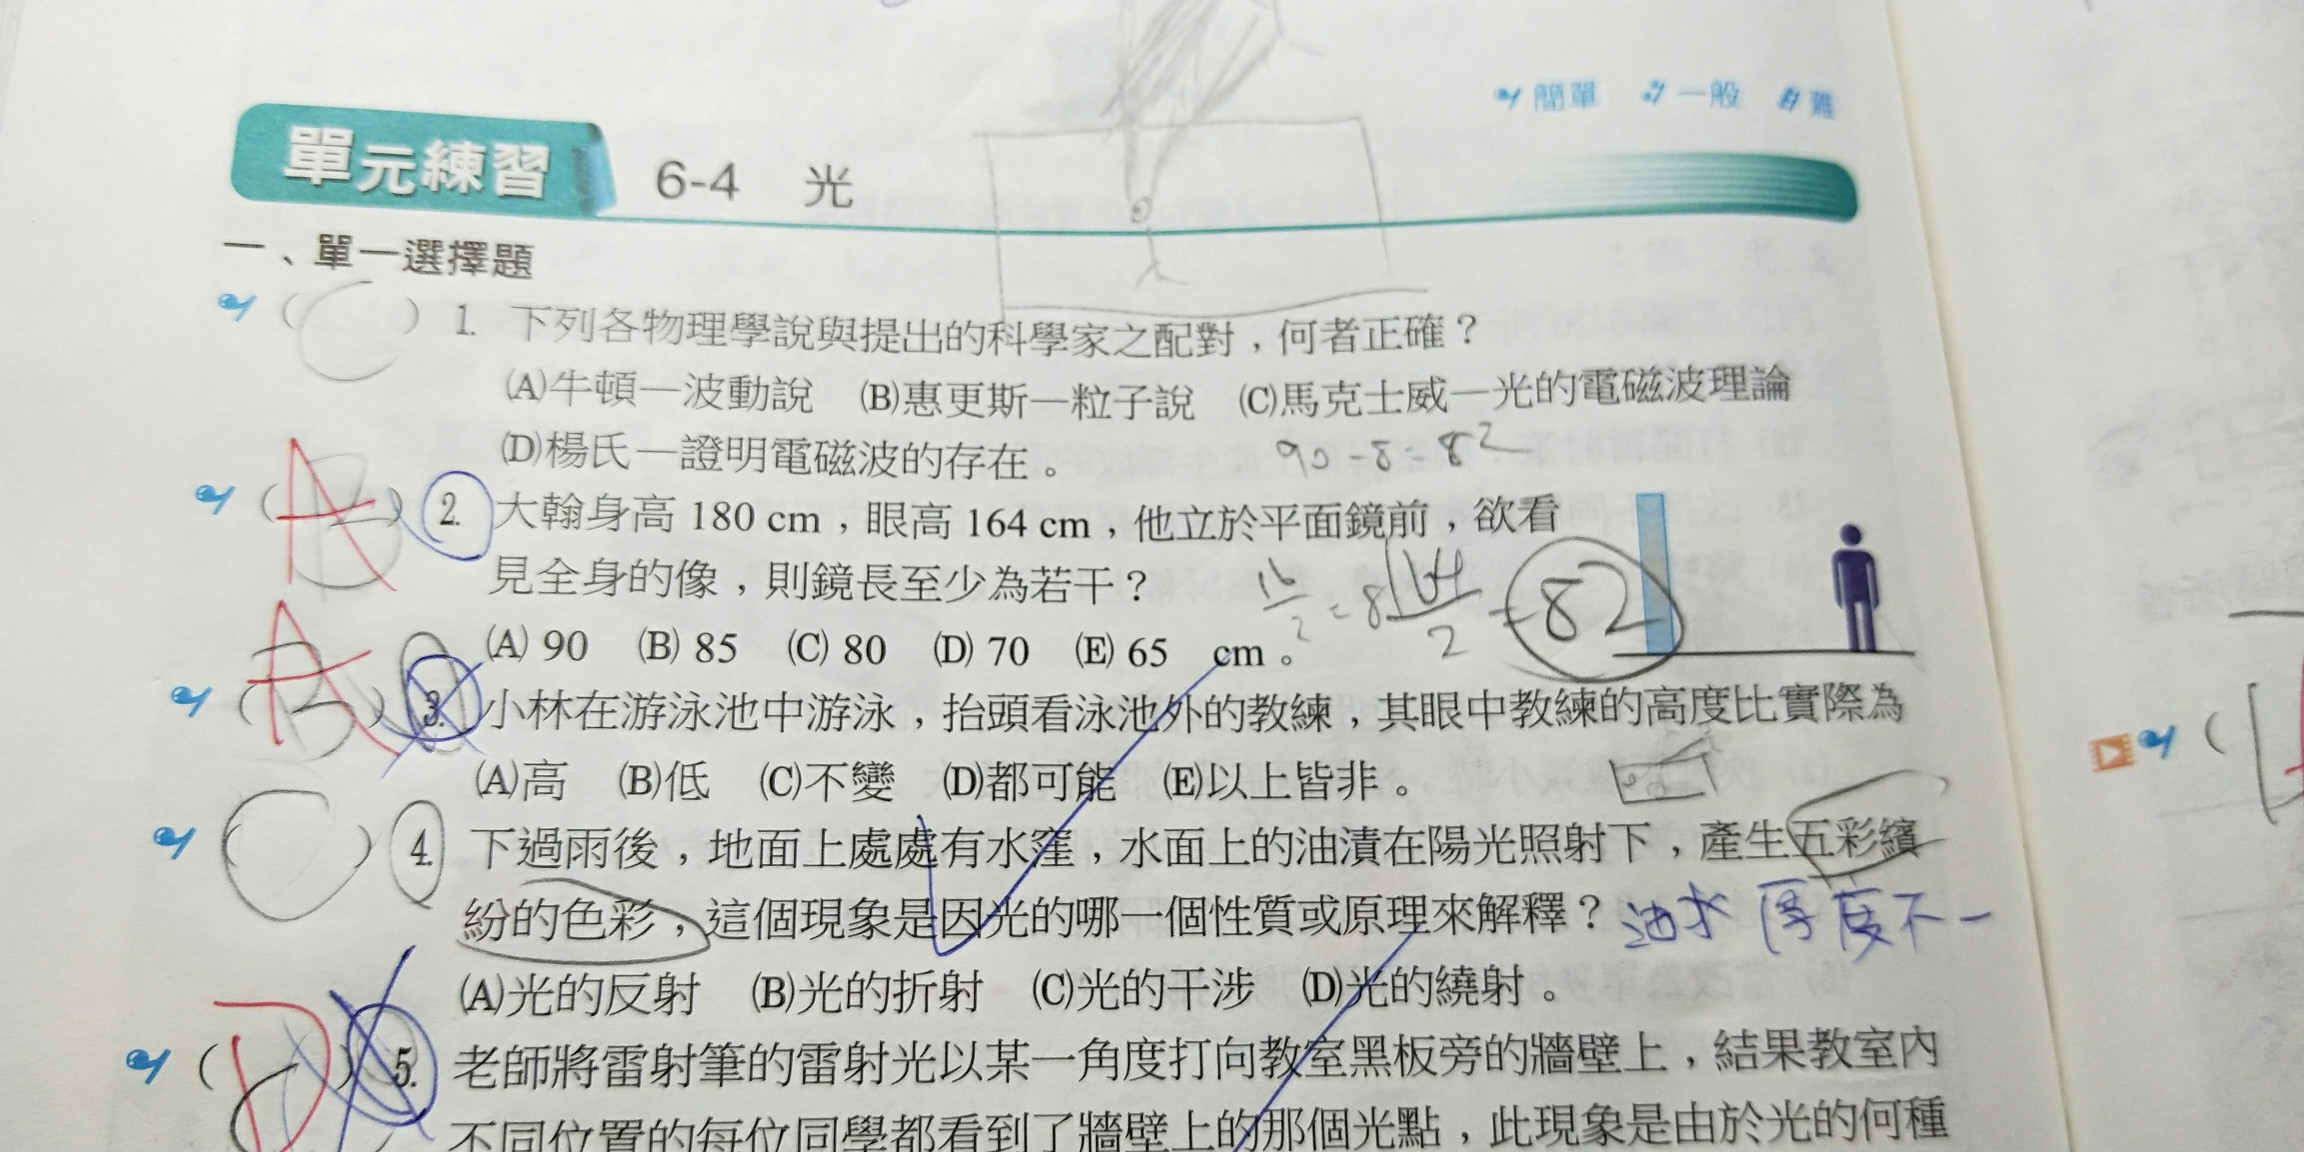 簡單 一般 難
單元練習 6-4 光
一、單一選擇題
( C ) 1. 下列各物理學說與提出的科學家之配對，何者正確？
(A)牛頓—波動說 (B)惠更斯—粒子說 (C)馬克士威—光的電磁波理論
(D)楊氏—證明電磁波的存在。
90-8=82
( A ) 2. 大翰身高 180 cm，眼高 164 cm，他立於平面鏡前，欲看
見全身的像，則鏡長至少為若干？
16/2=8 164/2=82
(A) 90 (B) 85 (C) 80 (D) 70 (E) 65 cm。
( A ) 3. 小林在游泳池中游泳，抬頭看泳池外的教練，其眼中教練的高度比實際為
(A)高 (B)低 (C)不變 (D)都可能 (E)以上皆非。
( C ) 4. 下過雨後，地面上處處有水窪，水面上的油漬在陽光照射下，產生五彩繽
紛的色彩，這個現象是因光的哪一個性質或原理來解釋？ 油水厚度不一
(A)光的反射 (B)光的折射 (C)光的干涉 (D)光的繞射。
( D ) 5. 老師將雷射筆的雷射光以某一角度打向教室黑板旁的牆壁上，結果教室內
不同位置的每位同學都看到了牆壁上的那個光點，此現象是由於光的何種